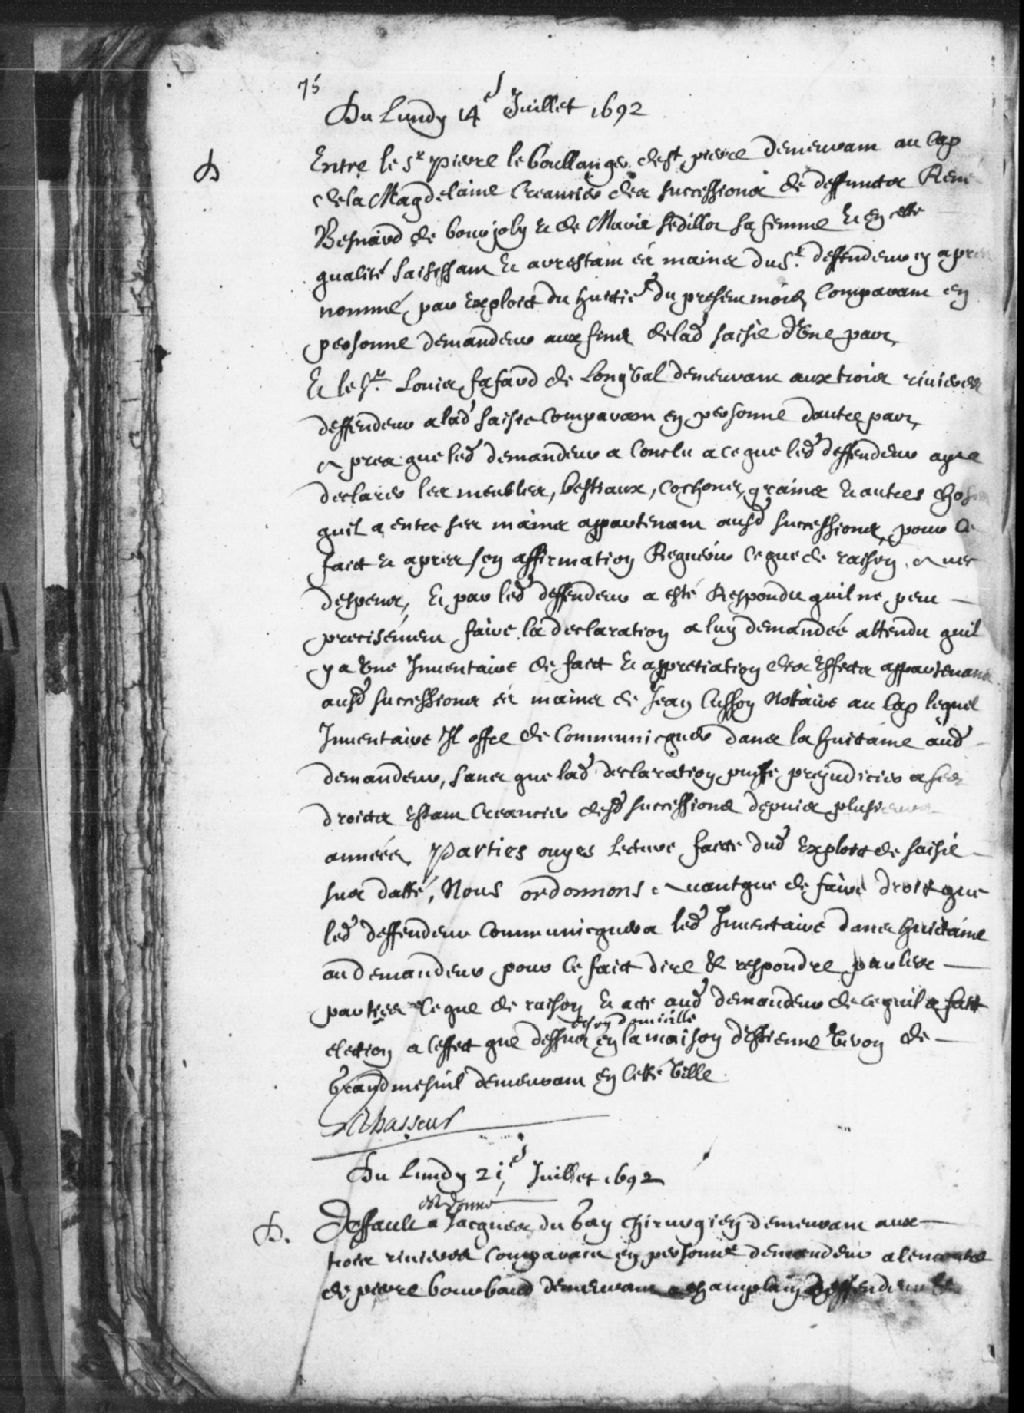 75
Du Lundy 14e Juillet 1692
D
Entre le Sr pierre le boullanger de St pierre demeurant au Cap
de la Magdelaine Creancier des successions de deffuncts René
Besnard de bourjoly & de Marie sedillot sa femme & en cette
qualité saisissant & arrestant és mains du Sr deffendeur cy apres
nommé, par exploict du huictie du present mois Comparant en
personne demandeur aux fins de lad saisie d'Une part,
Et le Sr Louis fafard de Longval demeurant aux trois rivieres
deffendeur a lad saisie Comparant en personne dautre part,
apres que led demandeur a Conclu a ce que led deffendeur aye a
declarer les meubles, bestiaux, Cochons, grains & autres choses
quil a entre ses mains appartenant ausd successions, pour ce
faict & apres son affirmation Requerir ce que de raison, avec
despens, Et par led deffendeur a esté Respondu quil ne peut
precisément faire la declaration a luy demandée attendu quil
y a Une Inventaire de faict & appretiation des Effects appartenant
ausd successions és mains de Jean Cusson Notaire au Cap lequel
Inventaire Il offre de Communicquer dans la huitaine aud
demandeur, sans que lad declaration puisse prejudicier a ses
droicts Estant Creancier desd successions depuis plusieurs
années, Parties ouyes Lecture faicte dud Exploict de saisie
sus datté, Nous ordonnons avant que de faire droit que
led deffendeur Communicquera led Inventaire dans huictaine
au demandeur pour ce faict dire & respondre par les
parties ce que de raison & acte aud demandeur de ce quil a fait
de son domicille
election a leffet que dessus en la maison d'Estienne Veron de
Grandmesnil demeurant en Cette Ville
Lechasseur
Du Lundy 21e Juillet 1692
est donné
D. Deffault a Jacques du bay chirurgien demeurant aux
trois rivieres Comparant en personne demandeur alencontre
de pierre bourbaud demeurant a champlain deffendeur &